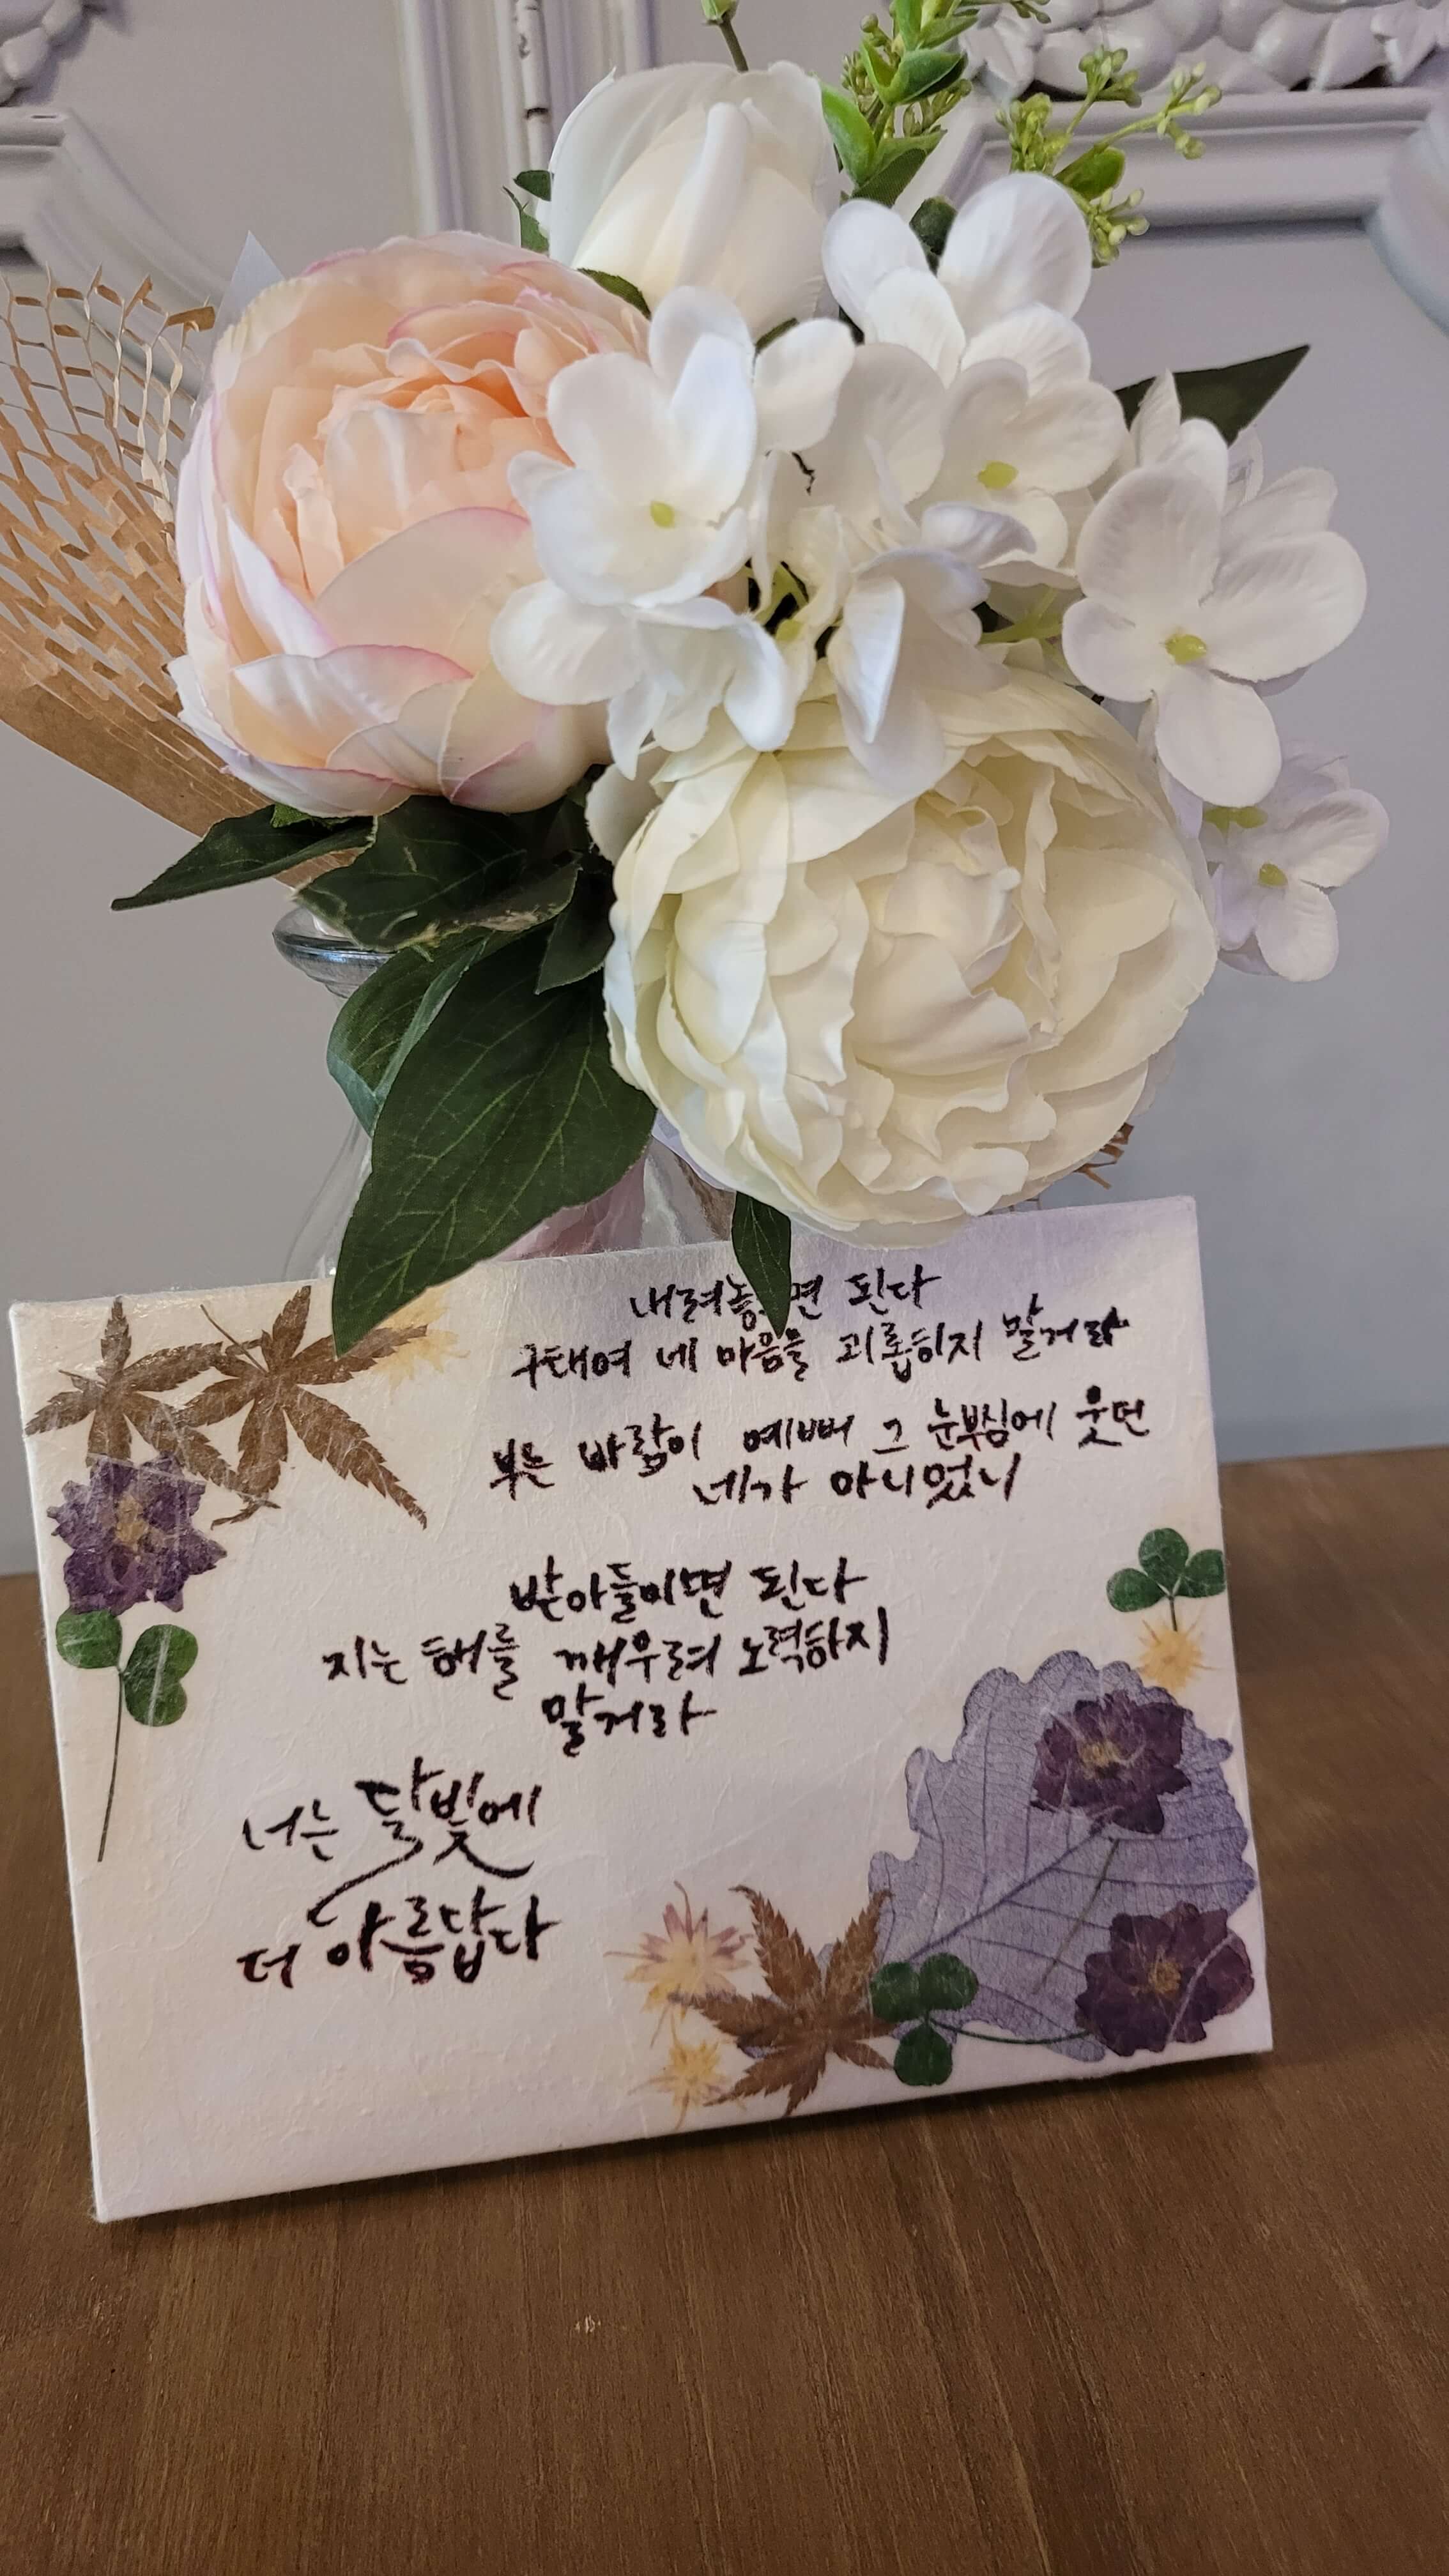 내려놓으면 된다
구태여 네 마음을 괴롭히지 말거라
부는 바람이 예뻐 그 눈부심에 웃던
네가 아니었니
받아들이면 된다
지는 해를 깨우려 노력하지
말거라
너는 달빛에
더 아름답다